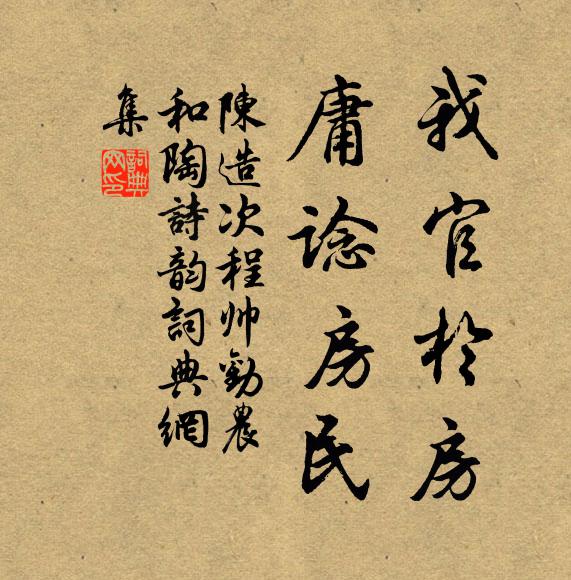 我官於房
庸諗房民
陳造次程帅勸農
和陶詩韵詞典網
集
詞典
网印